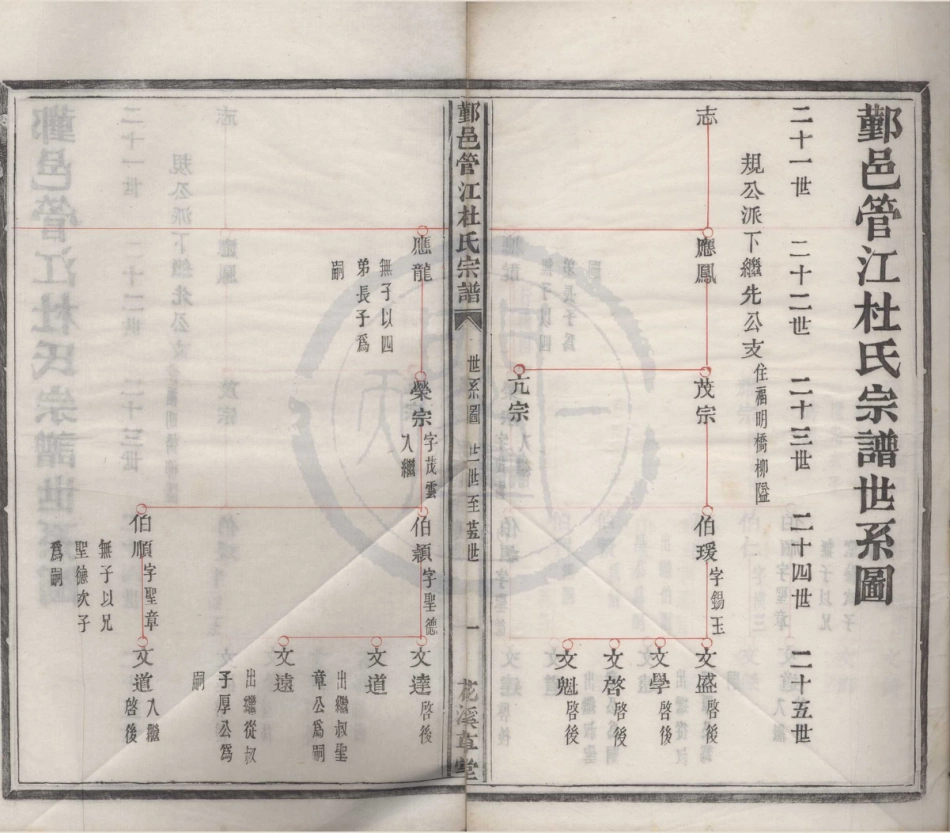 鄞邑管江杜氏宗譜世系圖
二十一世 二十二世 二十三世 二十四世 二十五世
規公派下繼先公支住福明橋柳隘
志
應鳳
茂宗
伯瑗字錫玉
文盛啓後
文學啓後
文啓啓後
文魁啓後
亢宗
鄞邑管江杜氏宗譜 世系圖 廿一世至廿五世 一 花溪草堂
應龍
無子以四
弟長子爲
嗣
榮宗字茂雲
入繼
伯顯字聖德
文達啓後
文道
出繼叔聖
章公爲嗣
文遠
出繼從叔
子厚公爲
嗣
伯順字聖章
無子以兄
聖德次子
爲嗣
文道入繼
啓後